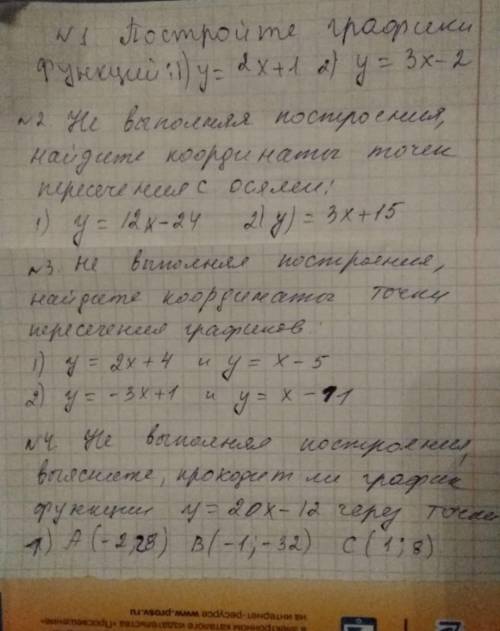 №1 Постройте графики
функций: 1) y = 2x+1 2) y = 3x-2
№2 Не выполняя построения,
найдите координаты точек
пересечения с осями:
1) y = 12x-24 2) y) = 3x+15
№3 Не выполняя построения,
найдите координаты точки
пересечения графиков:
1) y = 2x+4 и y = x-5
2) y = -3x+1 и y = x-11
№4. Не выполняя построения,
выясните, проходит ли график
функции y = 20x-12 через точки
1) A(-2,28) B(-1;-32) C(1;8)
в электронном каталоге издательства «Просвещение»
на интернет-ресурсе www.prosv.ru